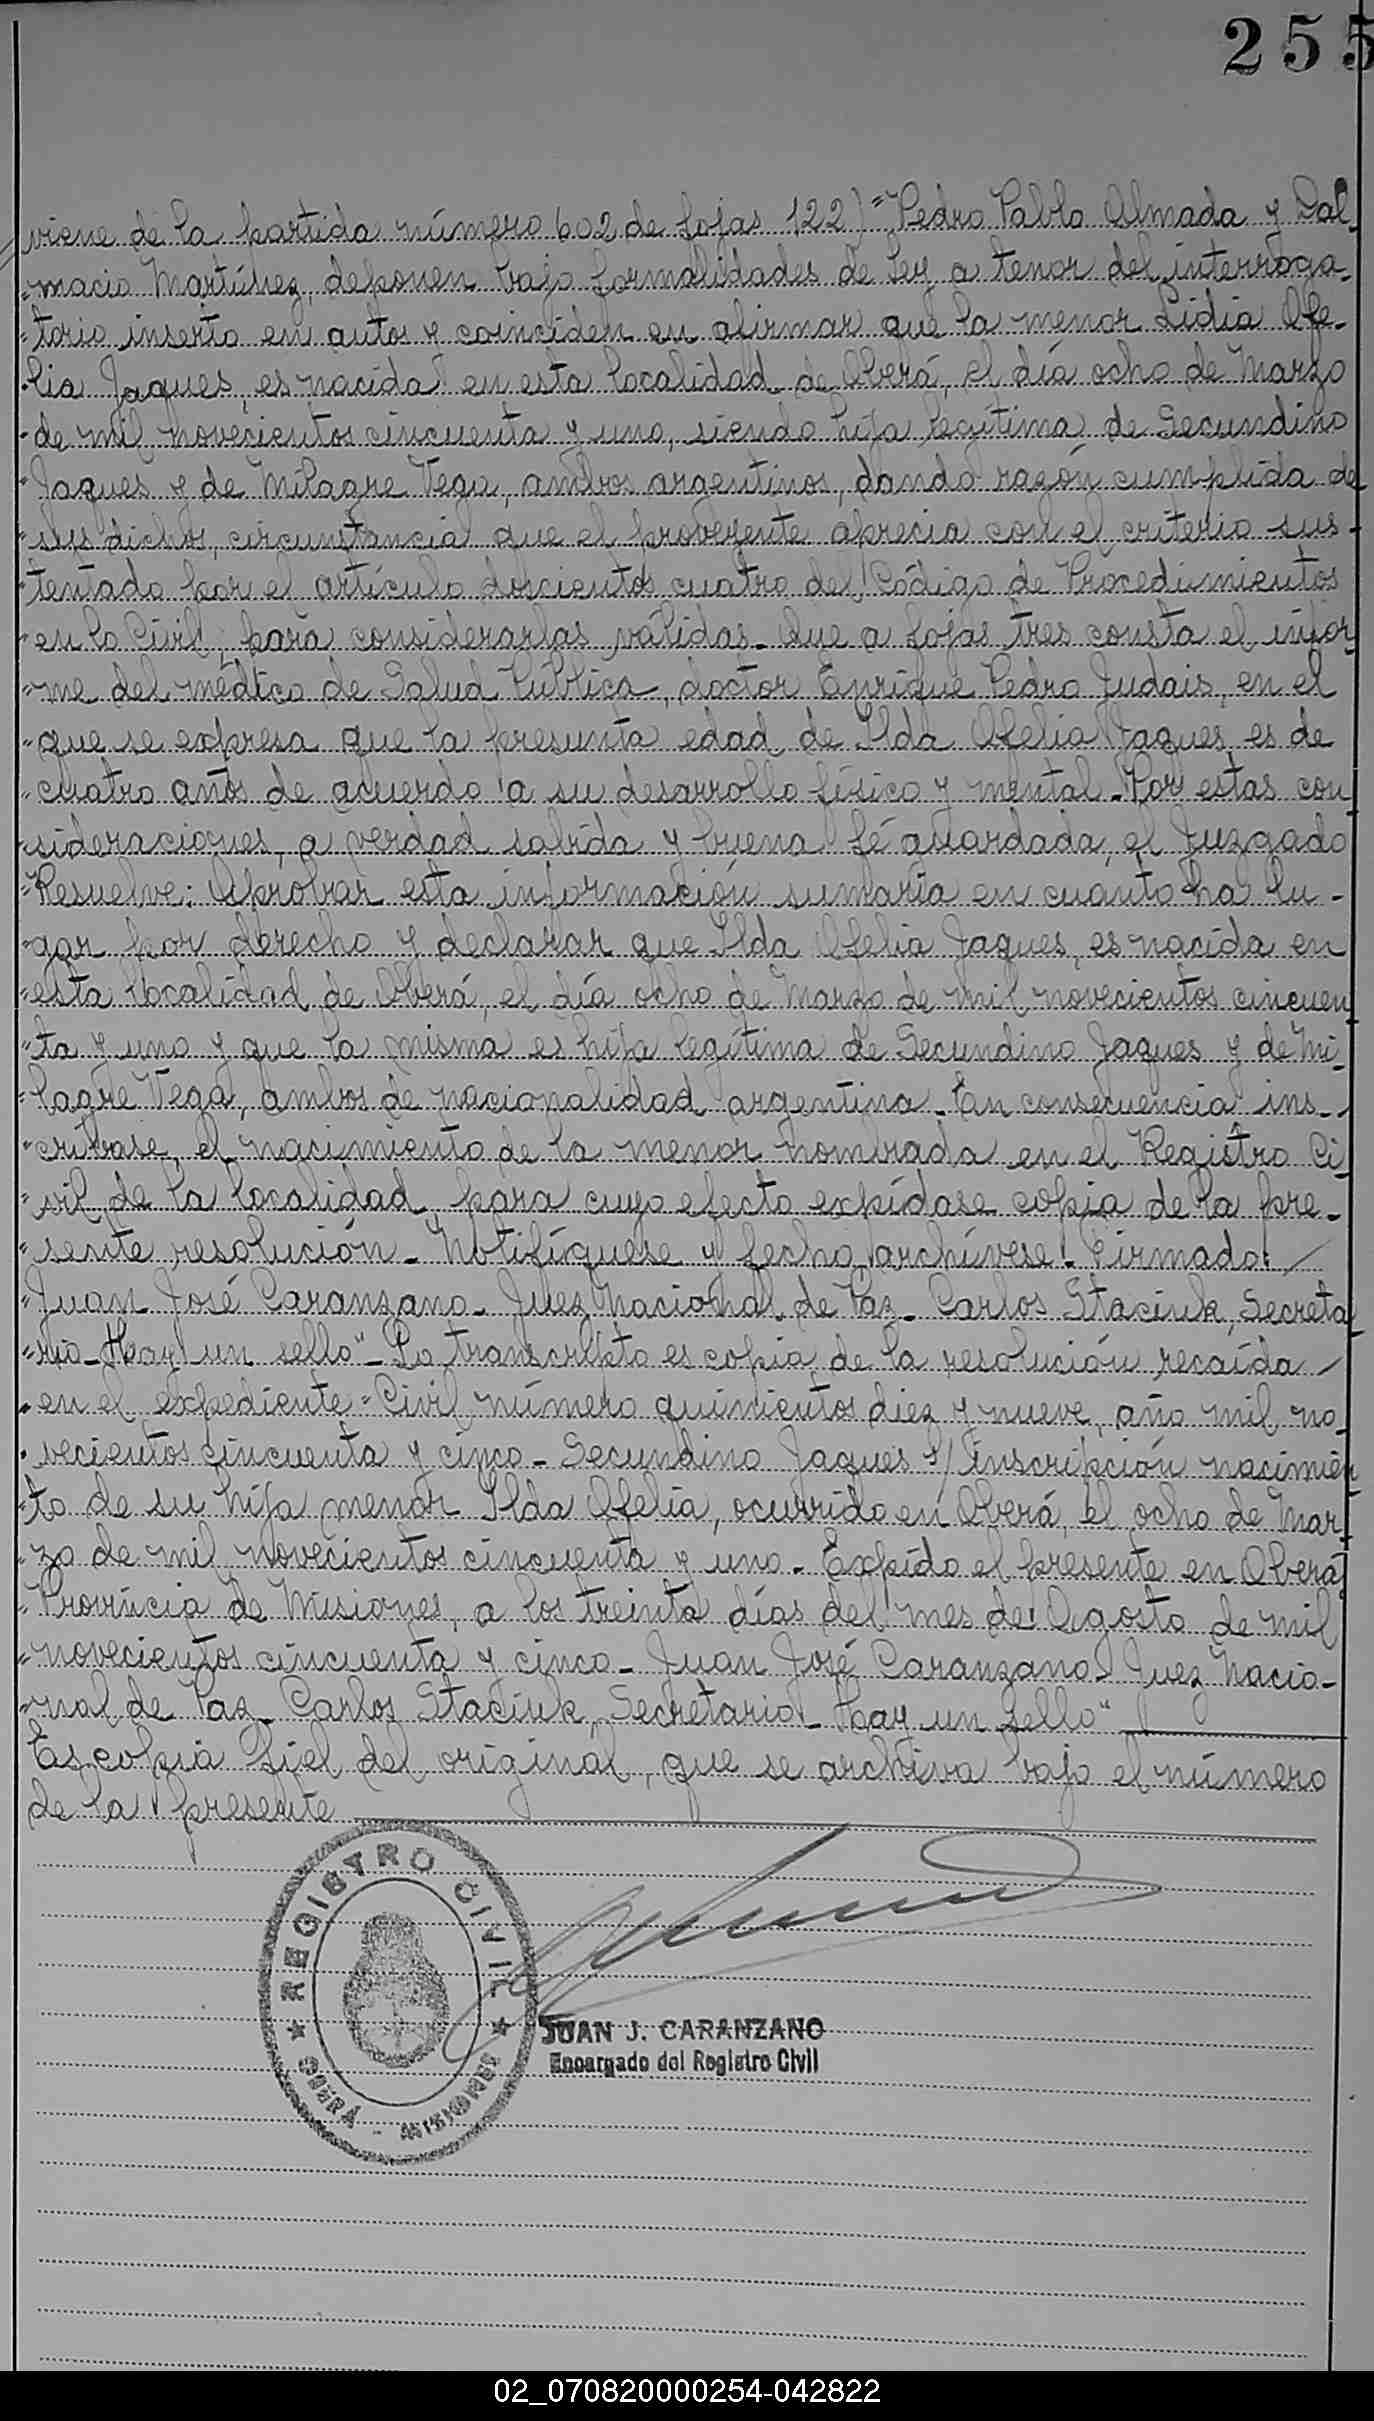 255
viene de la partida número 602 de fojas 122) "Pedro Pablo Almada y Dal-
"macio Martínez, deponen bajo formalidades de ley a tenor del interroga-
"torio inserto en autos y coinciden en afirmar que la menor Lidia Ofe-
"lia Jaques, es nacida en esta localidad de Oberá, el día ocho de Marzo
"de mil novecientos cincuenta y uno, siendo hija legítima de Secundino
"Jaques y de Milagre Vega, ambos argentinos, dando razón cumplida de
"sus dichos, circunstancia que el proveyente aprecia con el criterio sus-
"tentado por el artículo doscientos cuatro del Código de Procedimientos
"en lo Civil, para considerarlas válidas. Que a fojas tres consta el infor
"me del médico de Salud Pública, doctor Enrique Pedro Judais, en el
"que se expresa que la presunta edad de Ilda Ofelia Jaques es de
"cuatro años de acuerdo a su desarrollo físico y mental. Por estas con
"sideraciones, a verdad sabida y buena fé guardada, el Juzgado
"Resuelve: Aprobar esta información sumaria en cuanto ha lu-
"gar por derecho y declarar que Ilda Ofelia Jaques, es nacida en
"esta localidad de Oberá, el día ocho de Marzo de mil novecientos cincuen
"ta y uno y que la misma es hija legítima de Secundino Jaques y de Mi-
"lagre Vega, ambos de nacionalidad argentina. En consecuencia ins-
"críbase, el nacimiento de la menor nombrada en el Registro Ci
"vil de la localidad para cuyo efecto expídase copia de la pre-
"sente resolución. Notifíquese y fecho archívese. Firmado:
"Juan José Caranzano. Juez Nacional de Paz. Carlos Staciuk, Secreta
"rio. Hay un sello". Lo transcripto es copia de la resolución recaída
"en el expediente "Civil número quinientos diez y nueve, año mil no
"vecientos cincuenta y cinco. Secundino Jaques s/ inscripción nacimien
"to de su hija menor Ilda Ofelia, ocurrido en Oberá, el ocho de Mar-
"zo de mil novecientos cincuenta y uno. Expido el presente en Oberá
"Provincia de Misiones, a los treinta días del mes de Agosto de mil
"novecientos cincuenta y cinco. Juan José Caranzano. Juez Nacio-
"nal de Paz. Carlos Staciuk, Secretario. Hay un sello"
Es copia fiel del original, que se archiva bajo el número
de la presente
REGISTRO CIVIL
OBERÁ - MISIONES
JUAN J. CARANZANO
Encargado del Registro Civil
02_070820000254-042822